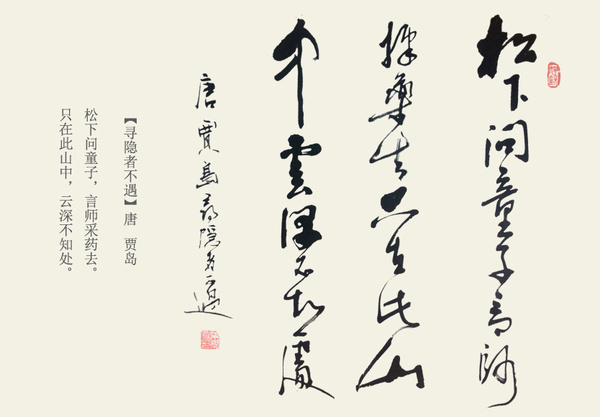 松下问童子言師
採藥去只在此山
中雲深不知處
唐賈島尋隱者不遇
【寻隐者不遇】唐 贾岛
松下问童子，言师采药去。
只在此山中，云深不知处。